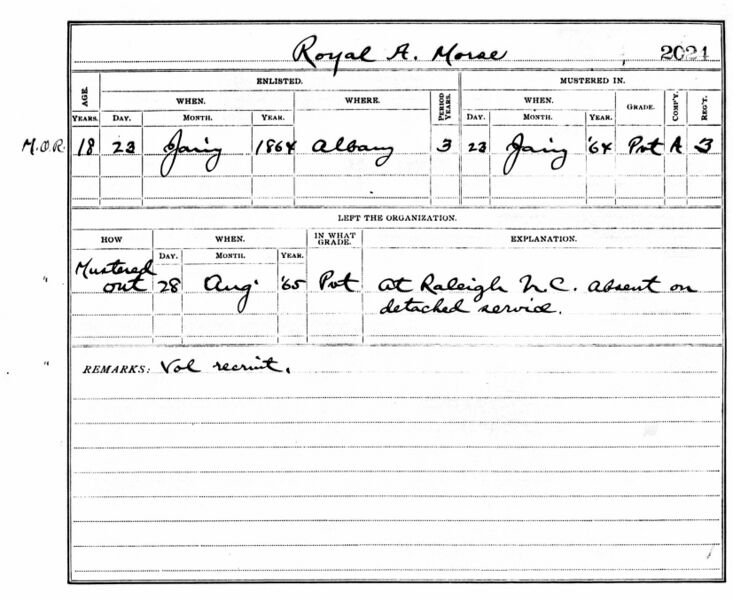 Royal A. Morse, 2021
ENLISTED. MUSTERED IN.
AGE. WHEN. WHERE. PERIOD YEARS. WHEN. GRADE. COMP'Y. REG'T.
YEARS. DAY. MONTH. YEAR. DAY. MONTH. YEAR.
M.O.R. 18 23 Jany 1864 Albany 3 23 Jany '64 Pvt A 3
LEFT THE ORGANIZATION.
HOW WHEN. IN WHAT GRADE. EXPLANATION.
DAY. MONTH. YEAR.
" Mustered out 28 Aug. '65 Pvt at Raleigh N.C. absent on
detached service.
" REMARKS: Vol recruit.